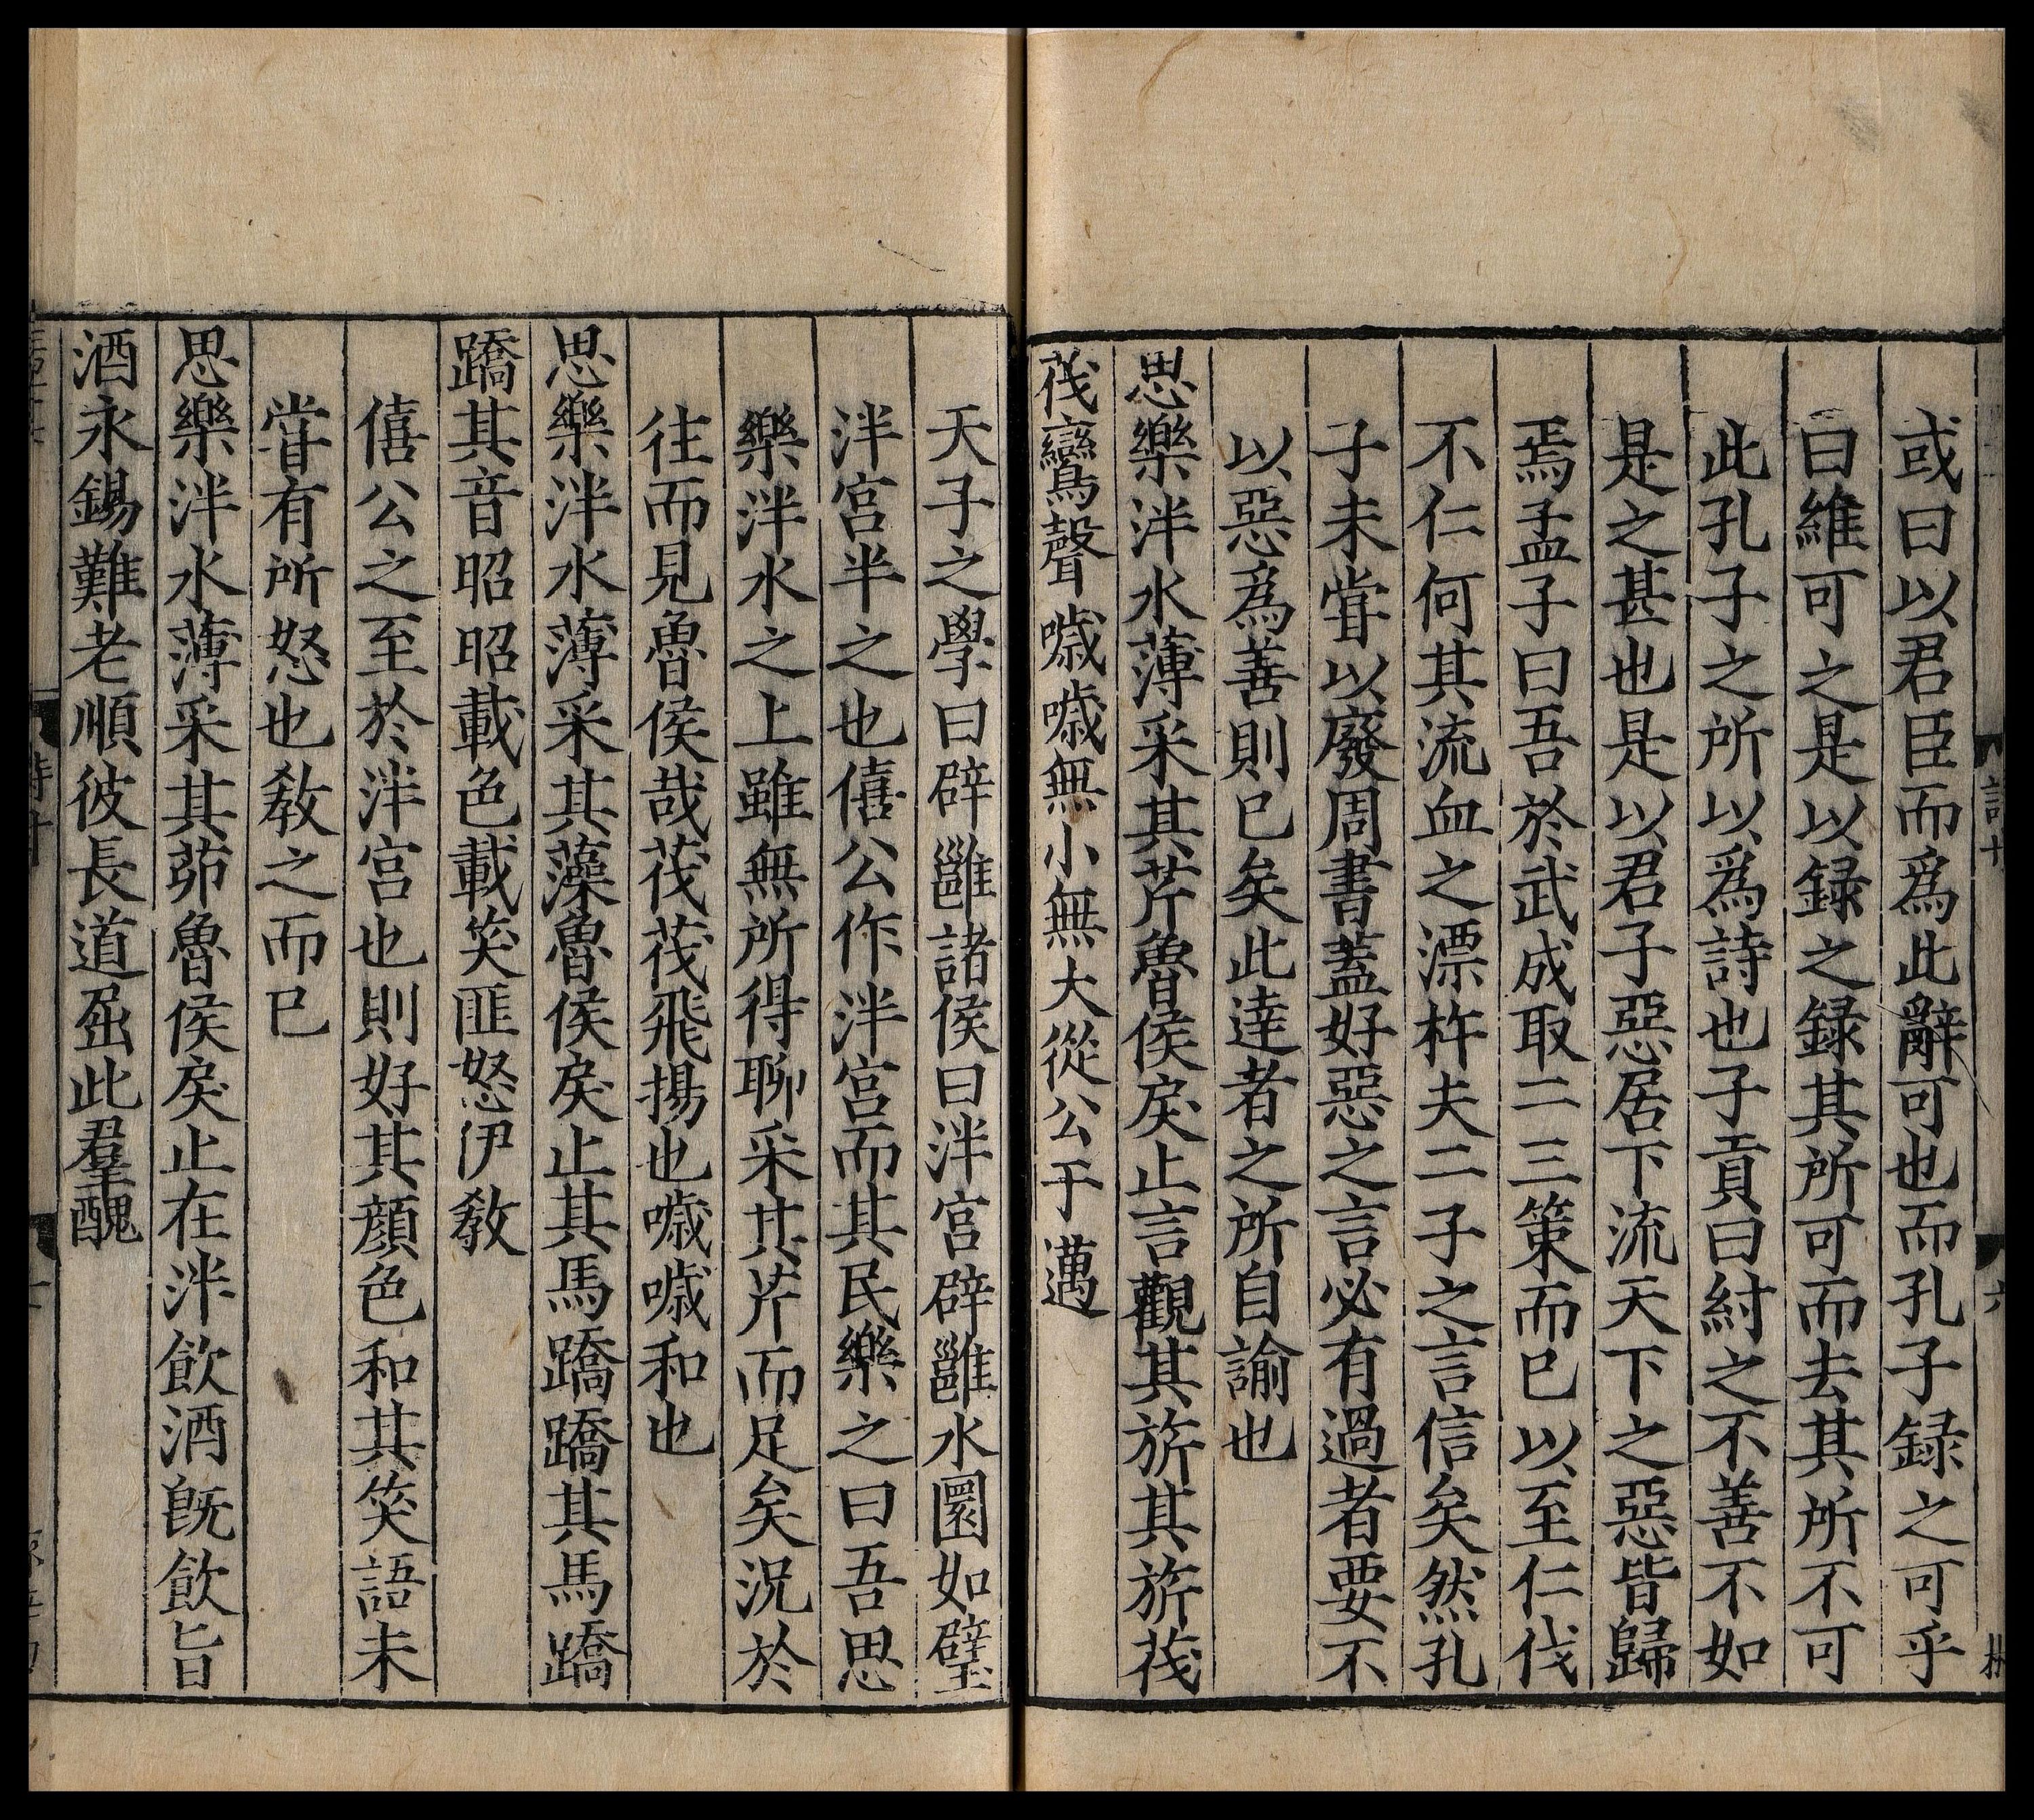 或曰以君臣而爲此辭可也而孔子録之可乎
曰維可之是以録之録其所可而去其所不可
此孔子之所以爲詩也子貢曰紂之不善不如
是之甚也是以君子惡居下流天下之惡皆歸
焉孟子曰吾於武成取二三策而已以至仁伐
不仁何其流血之漂杵夫二子之言信矣然孔
子未甞以廢周書蓋好惡之言必有過者要不
以惡爲善則已矣此達者之所自諭也
思樂泮水薄采其芹魯侯戾止言觀其旂其旂茷
茷鸞聲噦噦無小無大從公于邁
天子之學曰辟雝諸侯曰泮宮辟雝水圜如璧
泮宮半之也僖公作泮宮而其民樂之曰吾思
樂泮水之上雖無所得聊采其芹而足矣況於
往而見魯侯哉茷茷飛揚也噦噦和也
思樂泮水薄采其藻魯侯戾止其馬蹻蹻其馬蹻
蹻其音昭昭載色載笑匪怒伊敎
僖公之至於泮宮也則好其顔色和其笑語未
甞有所怒也敎之而已
思樂泮水薄采其茆魯侯戾止在泮飲酒旣飲旨
酒永錫難老順彼長道屈此羣醜